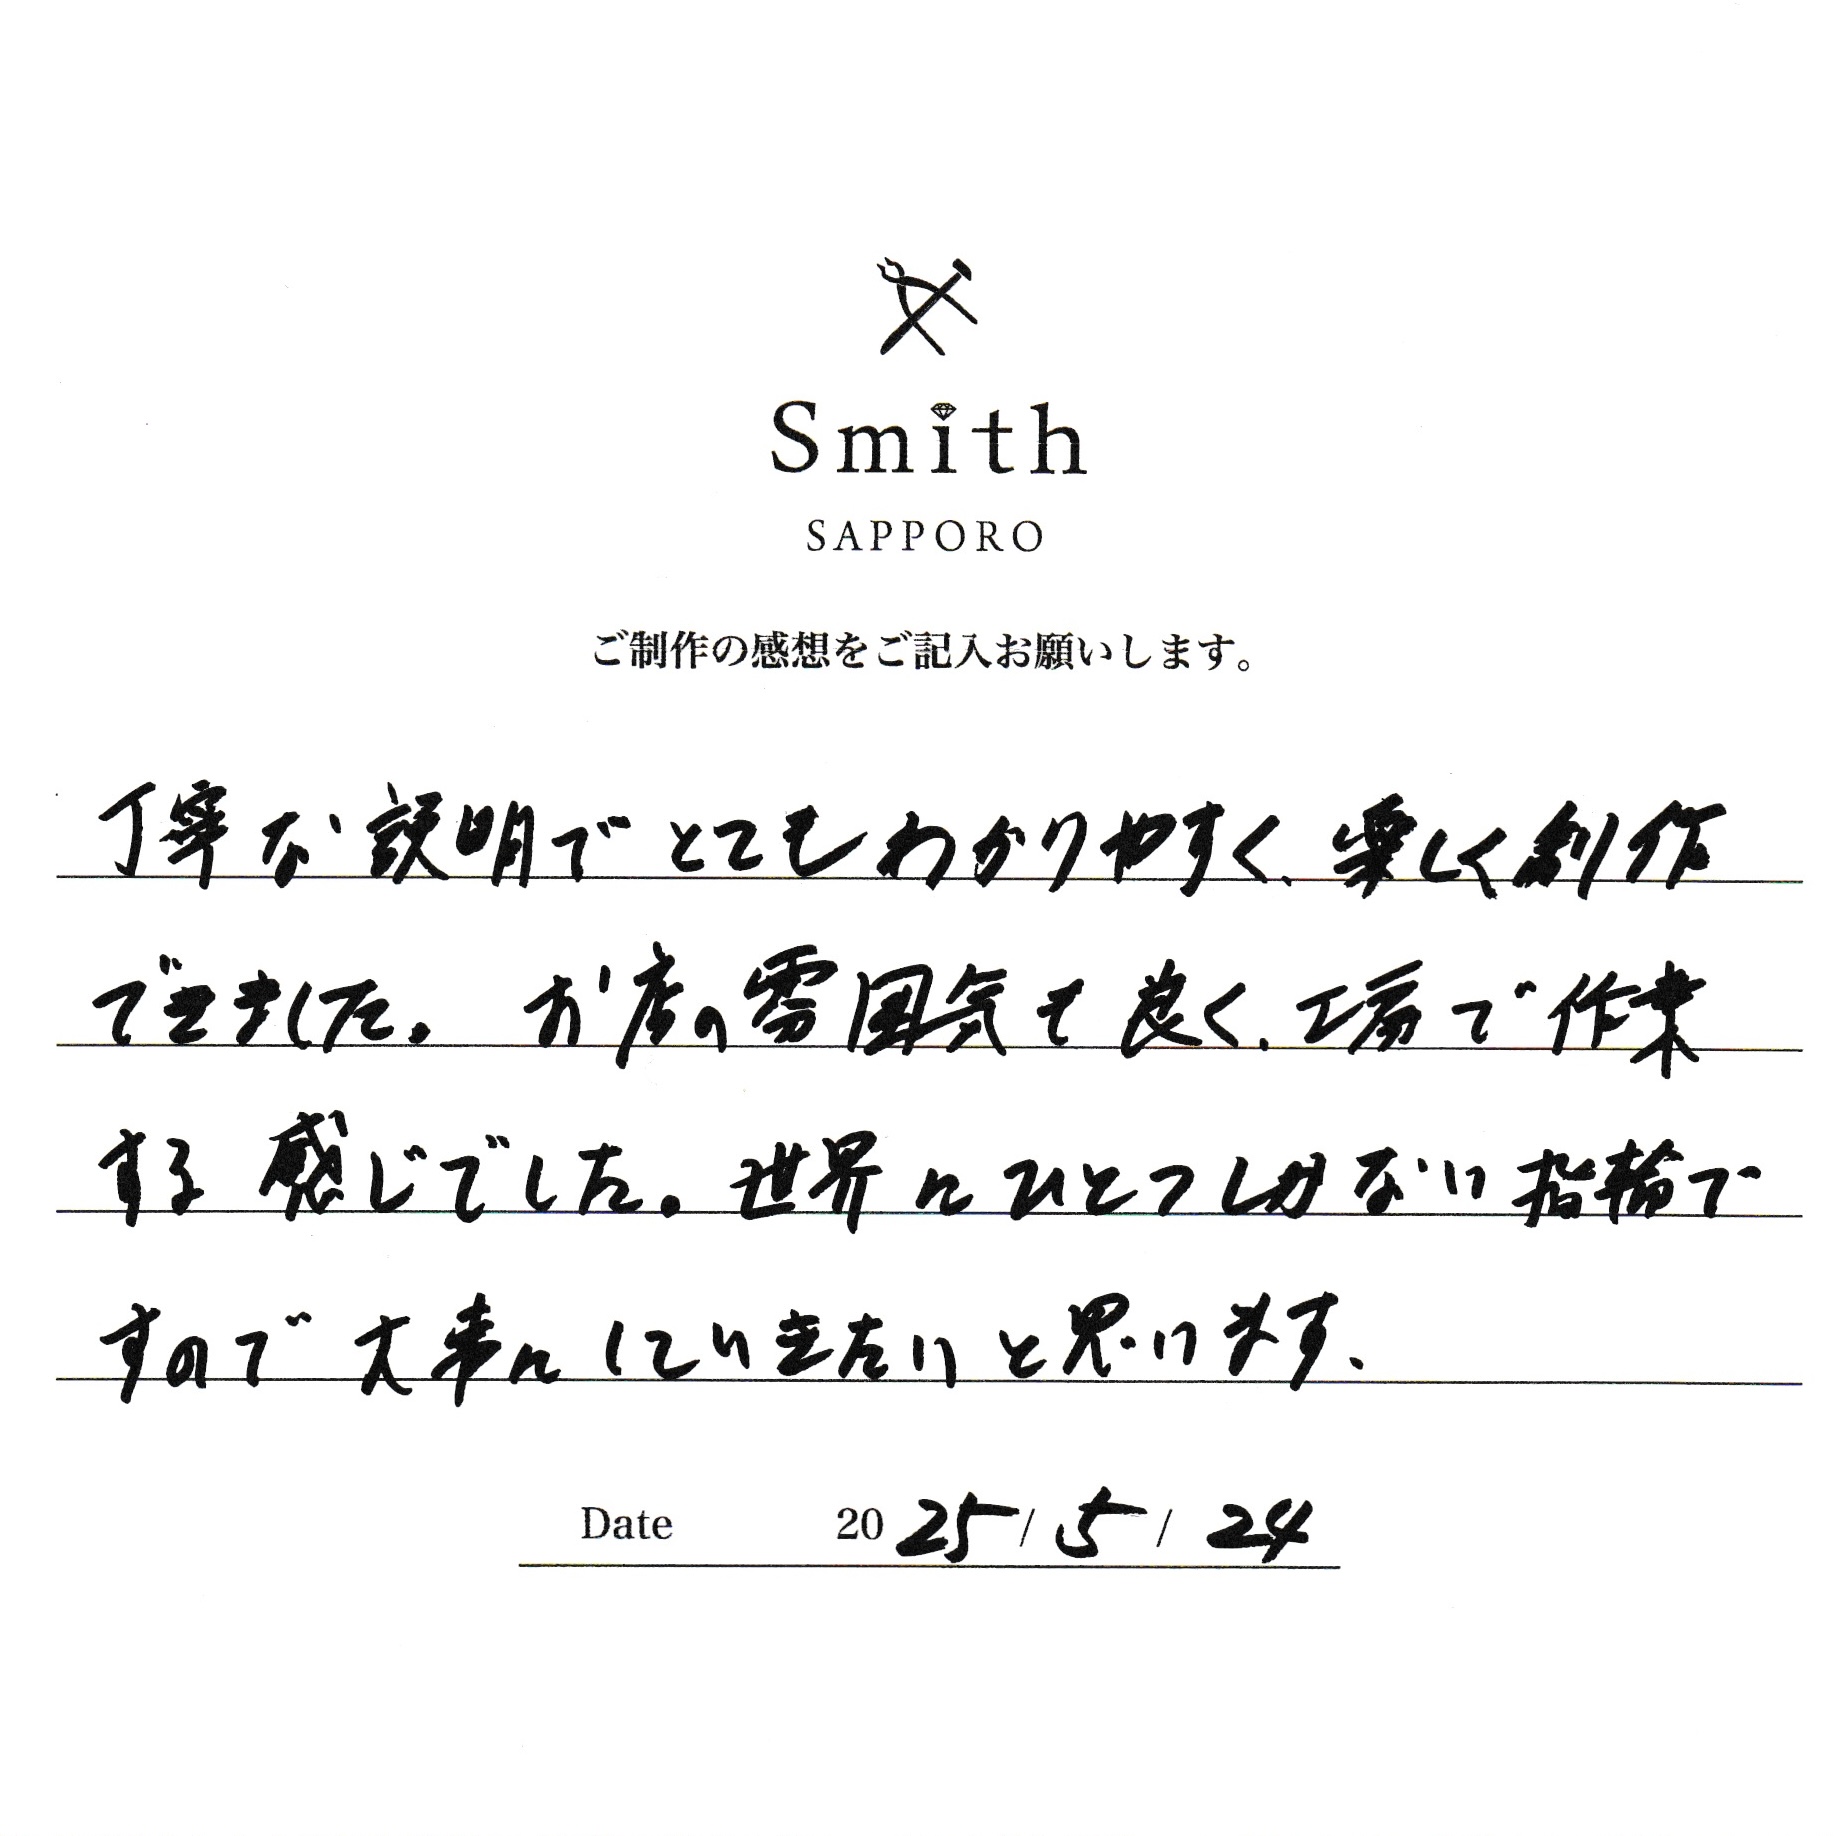 Smith
SAPPORO
ご制作の感想をご記入お願いします。
丁寧な説明でとてもわかりやすく、楽しく創作
できました。お店の雰囲気も良く、工房で作業
する感じでした。世界にひとつしかない指輪で
すので大事にしていきたいと思います.
Date 2025/5/24